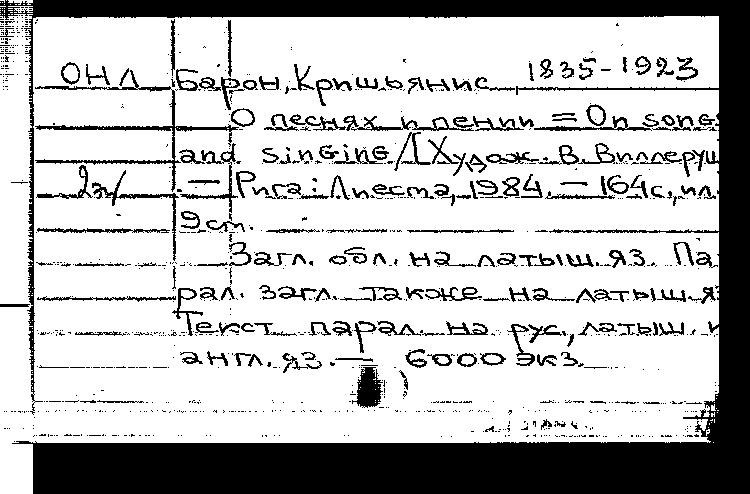 ОНЛ Барон, Кришьянис 1835-1923
О песнях и пении = On songs
and singing / [Худож. В. Виллеруш
2эк. - Рига: Лиесма, 1984. - 164с., ил.
9см.
Загл. обл. на латыш. яз. Па-
рал. загл. также на латыш. яз
Текст парал. на рус., латыш. и
англ. яз. - 6000 экз.